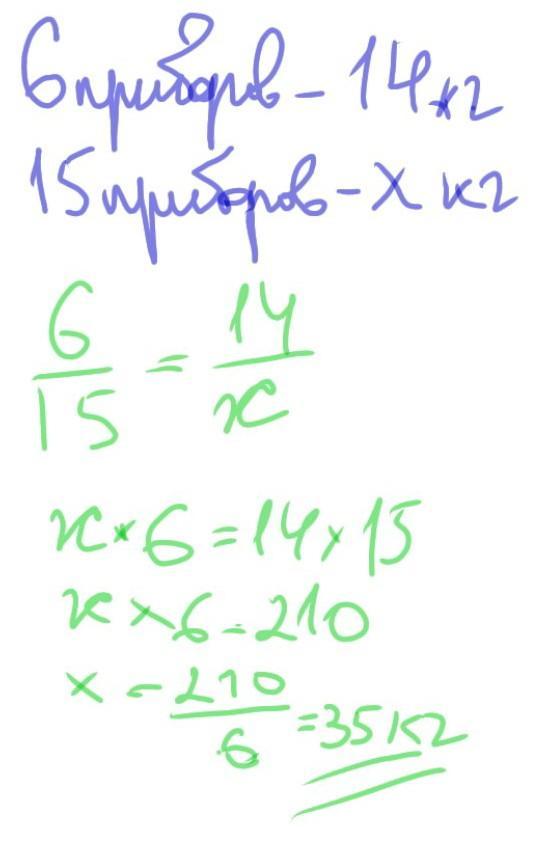 6 приборов - 14 кг
15 приборов - x кг
6/15 = 14/x
x × 6 = 14 × 15
x × 6 = 210
x = 210/6 = 35 кг